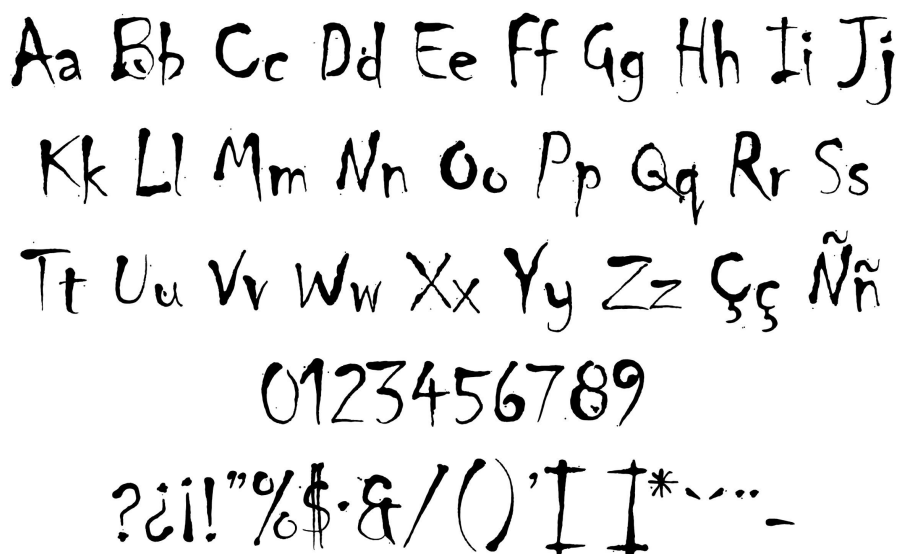 Aa Bb Cc Dd Ee Ff Gg Hh Ii Jj
Kk Ll Mm Nn Oo Pp Qq Rr Ss
Tt Uu Vv Ww Xx Yy Zz Çç Ññ
0123456789
?¿¡!"%$·&/()'I I*`´¨-